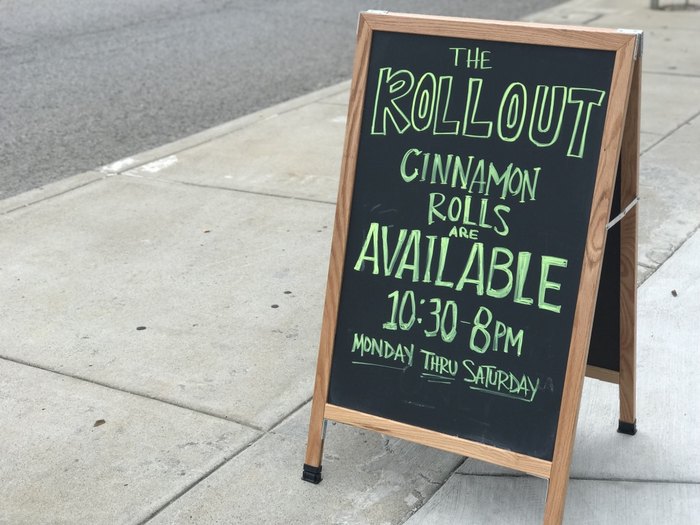 THE
ROLLOUT
CINNAMON
ROLLS
ARE
AVAILABLE
10:30-8PM
MONDAY THRU SATURDAY